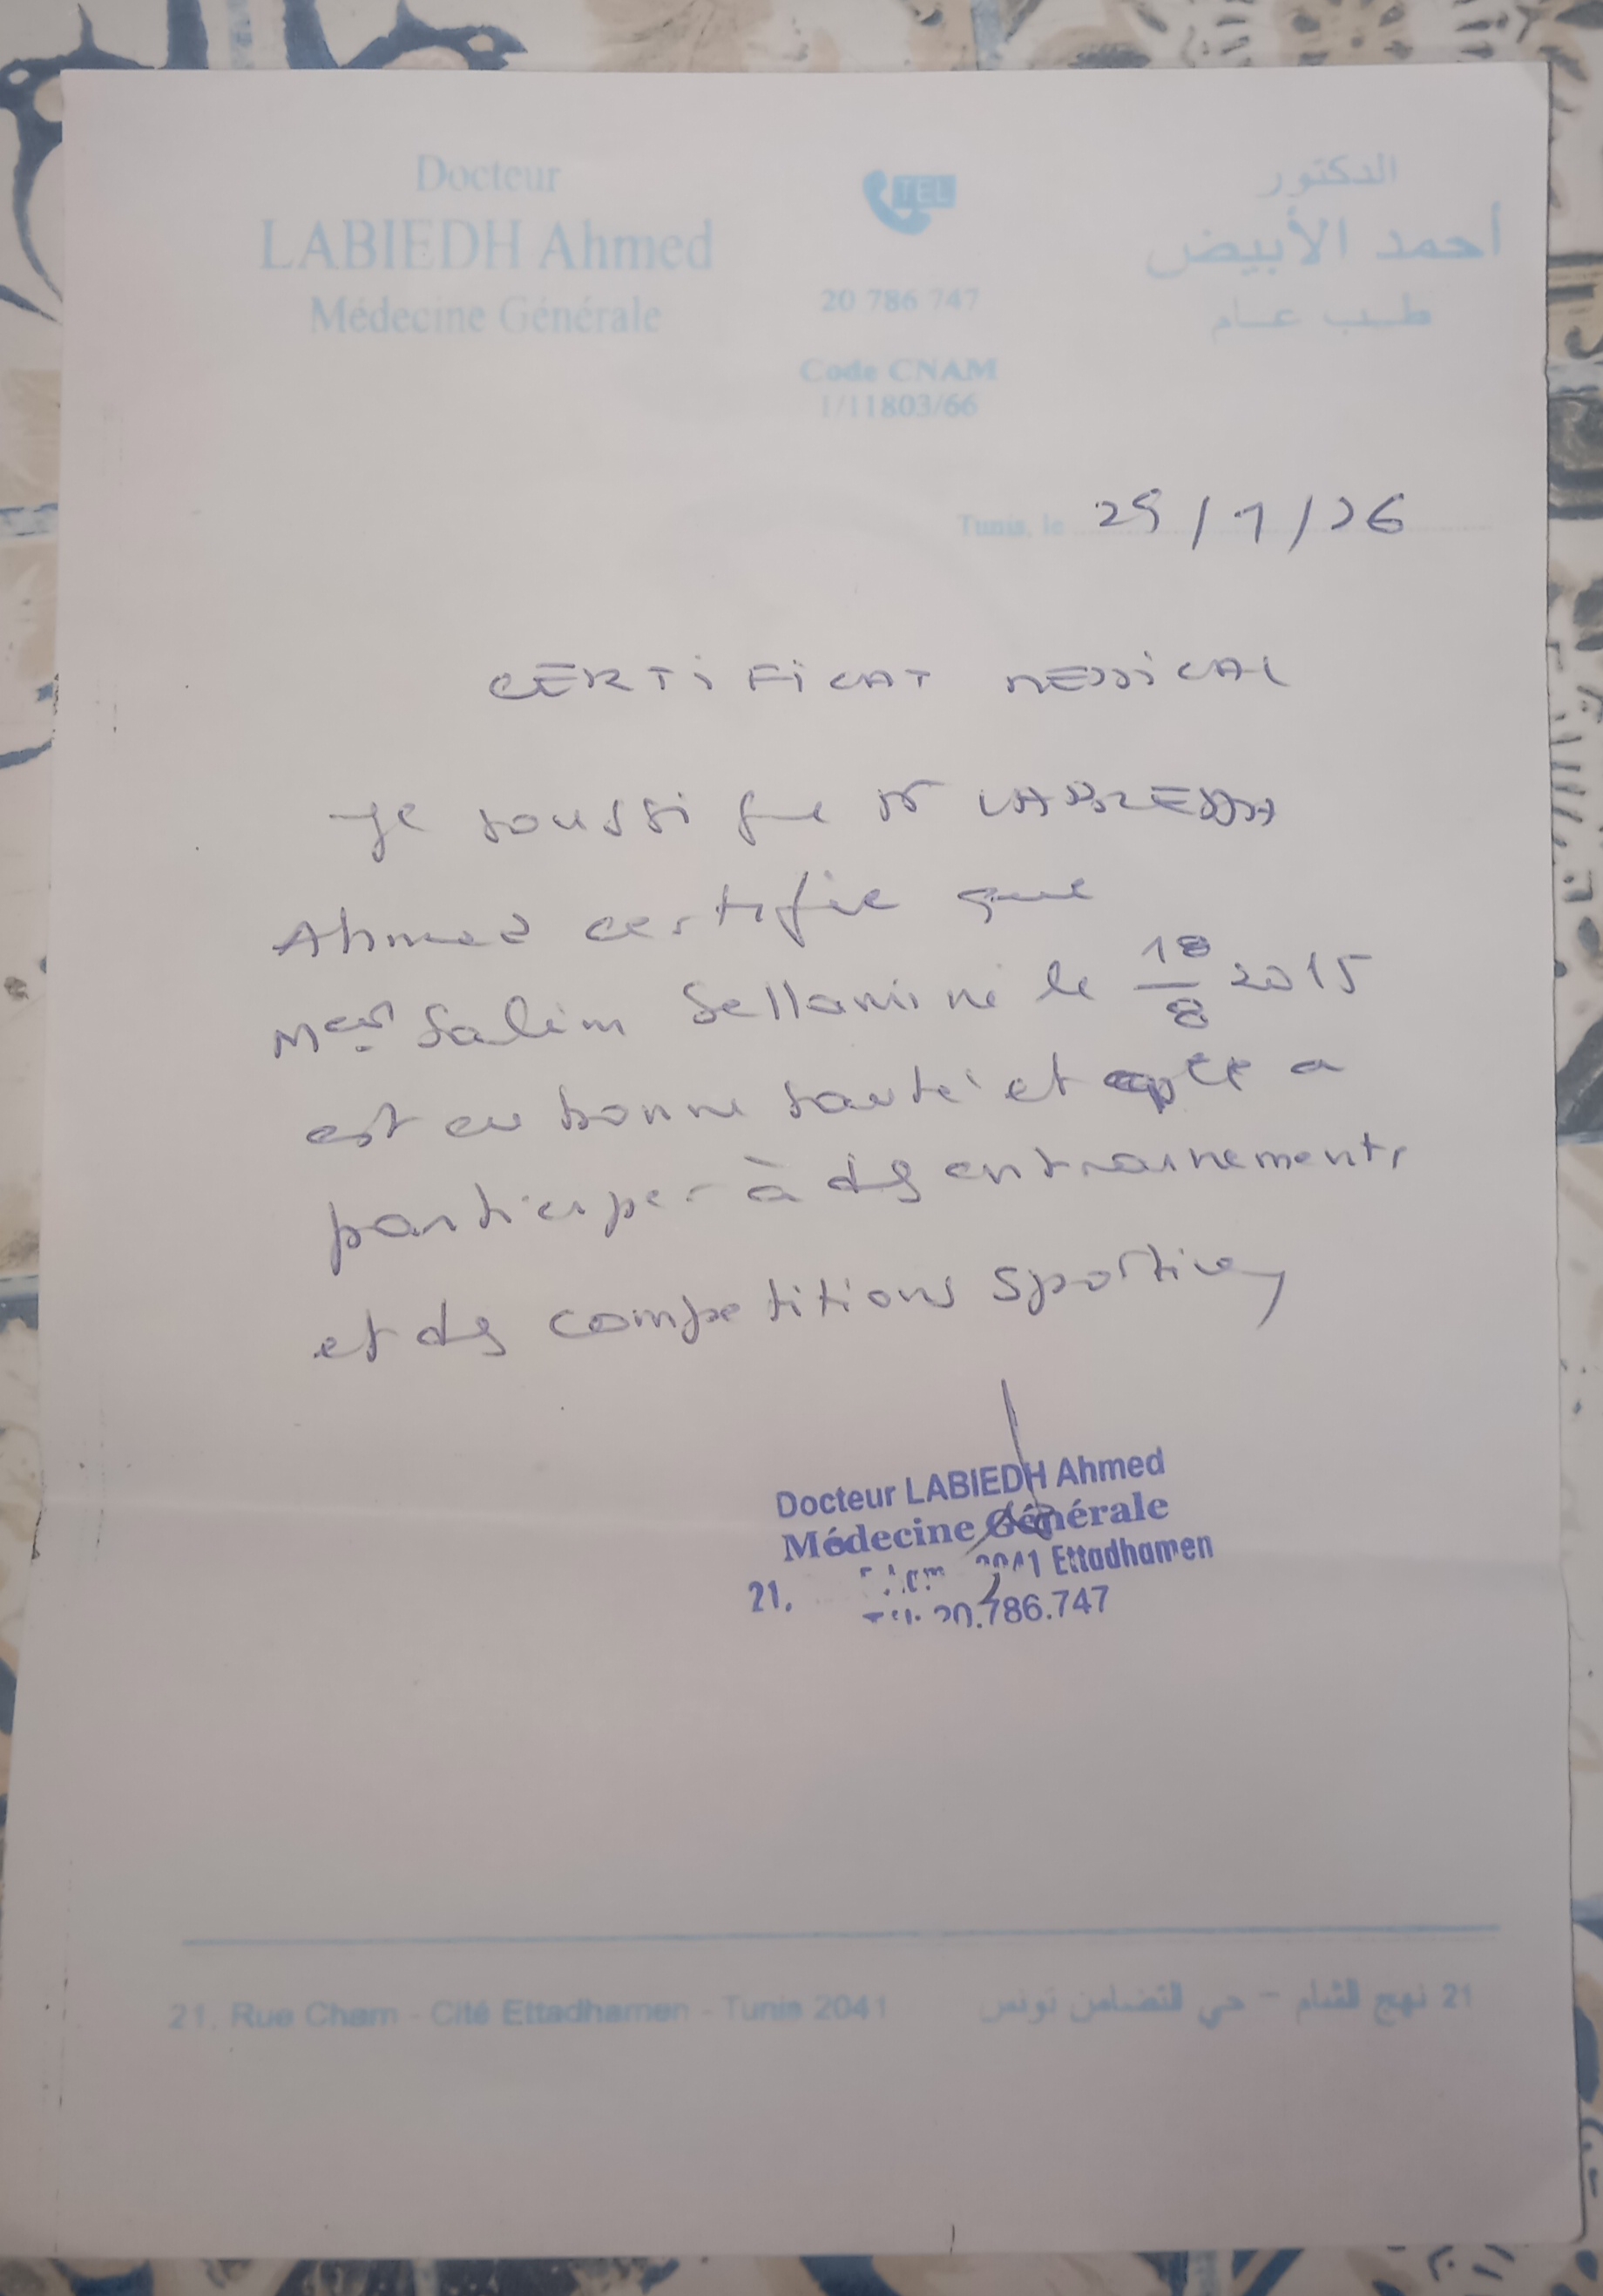 Docteur
LABIEDH Ahmed
Médecine Générale
TEL
20 786 747
Code CNAM
1/11803/66
الدكتور
أحمد الأبيض
طب عام
Tunis, le 29/1/26
CERTIFICAT MEDICAL
Je soussigne Dr LABIEDH
Ahmed certifie que
Salim Sellami né le 18/8 2015
est en bonne santé et apte a
participer à des entrainements
et des competitions sportives
Docteur LABIEDH Ahmed
Médecine Générale
21. 2041 Ettadhamen
20.786.747
21. Rue Cham - Cité Ettadhamen - Tunis 2041
21 نهج الشام - حي التضامن تونس